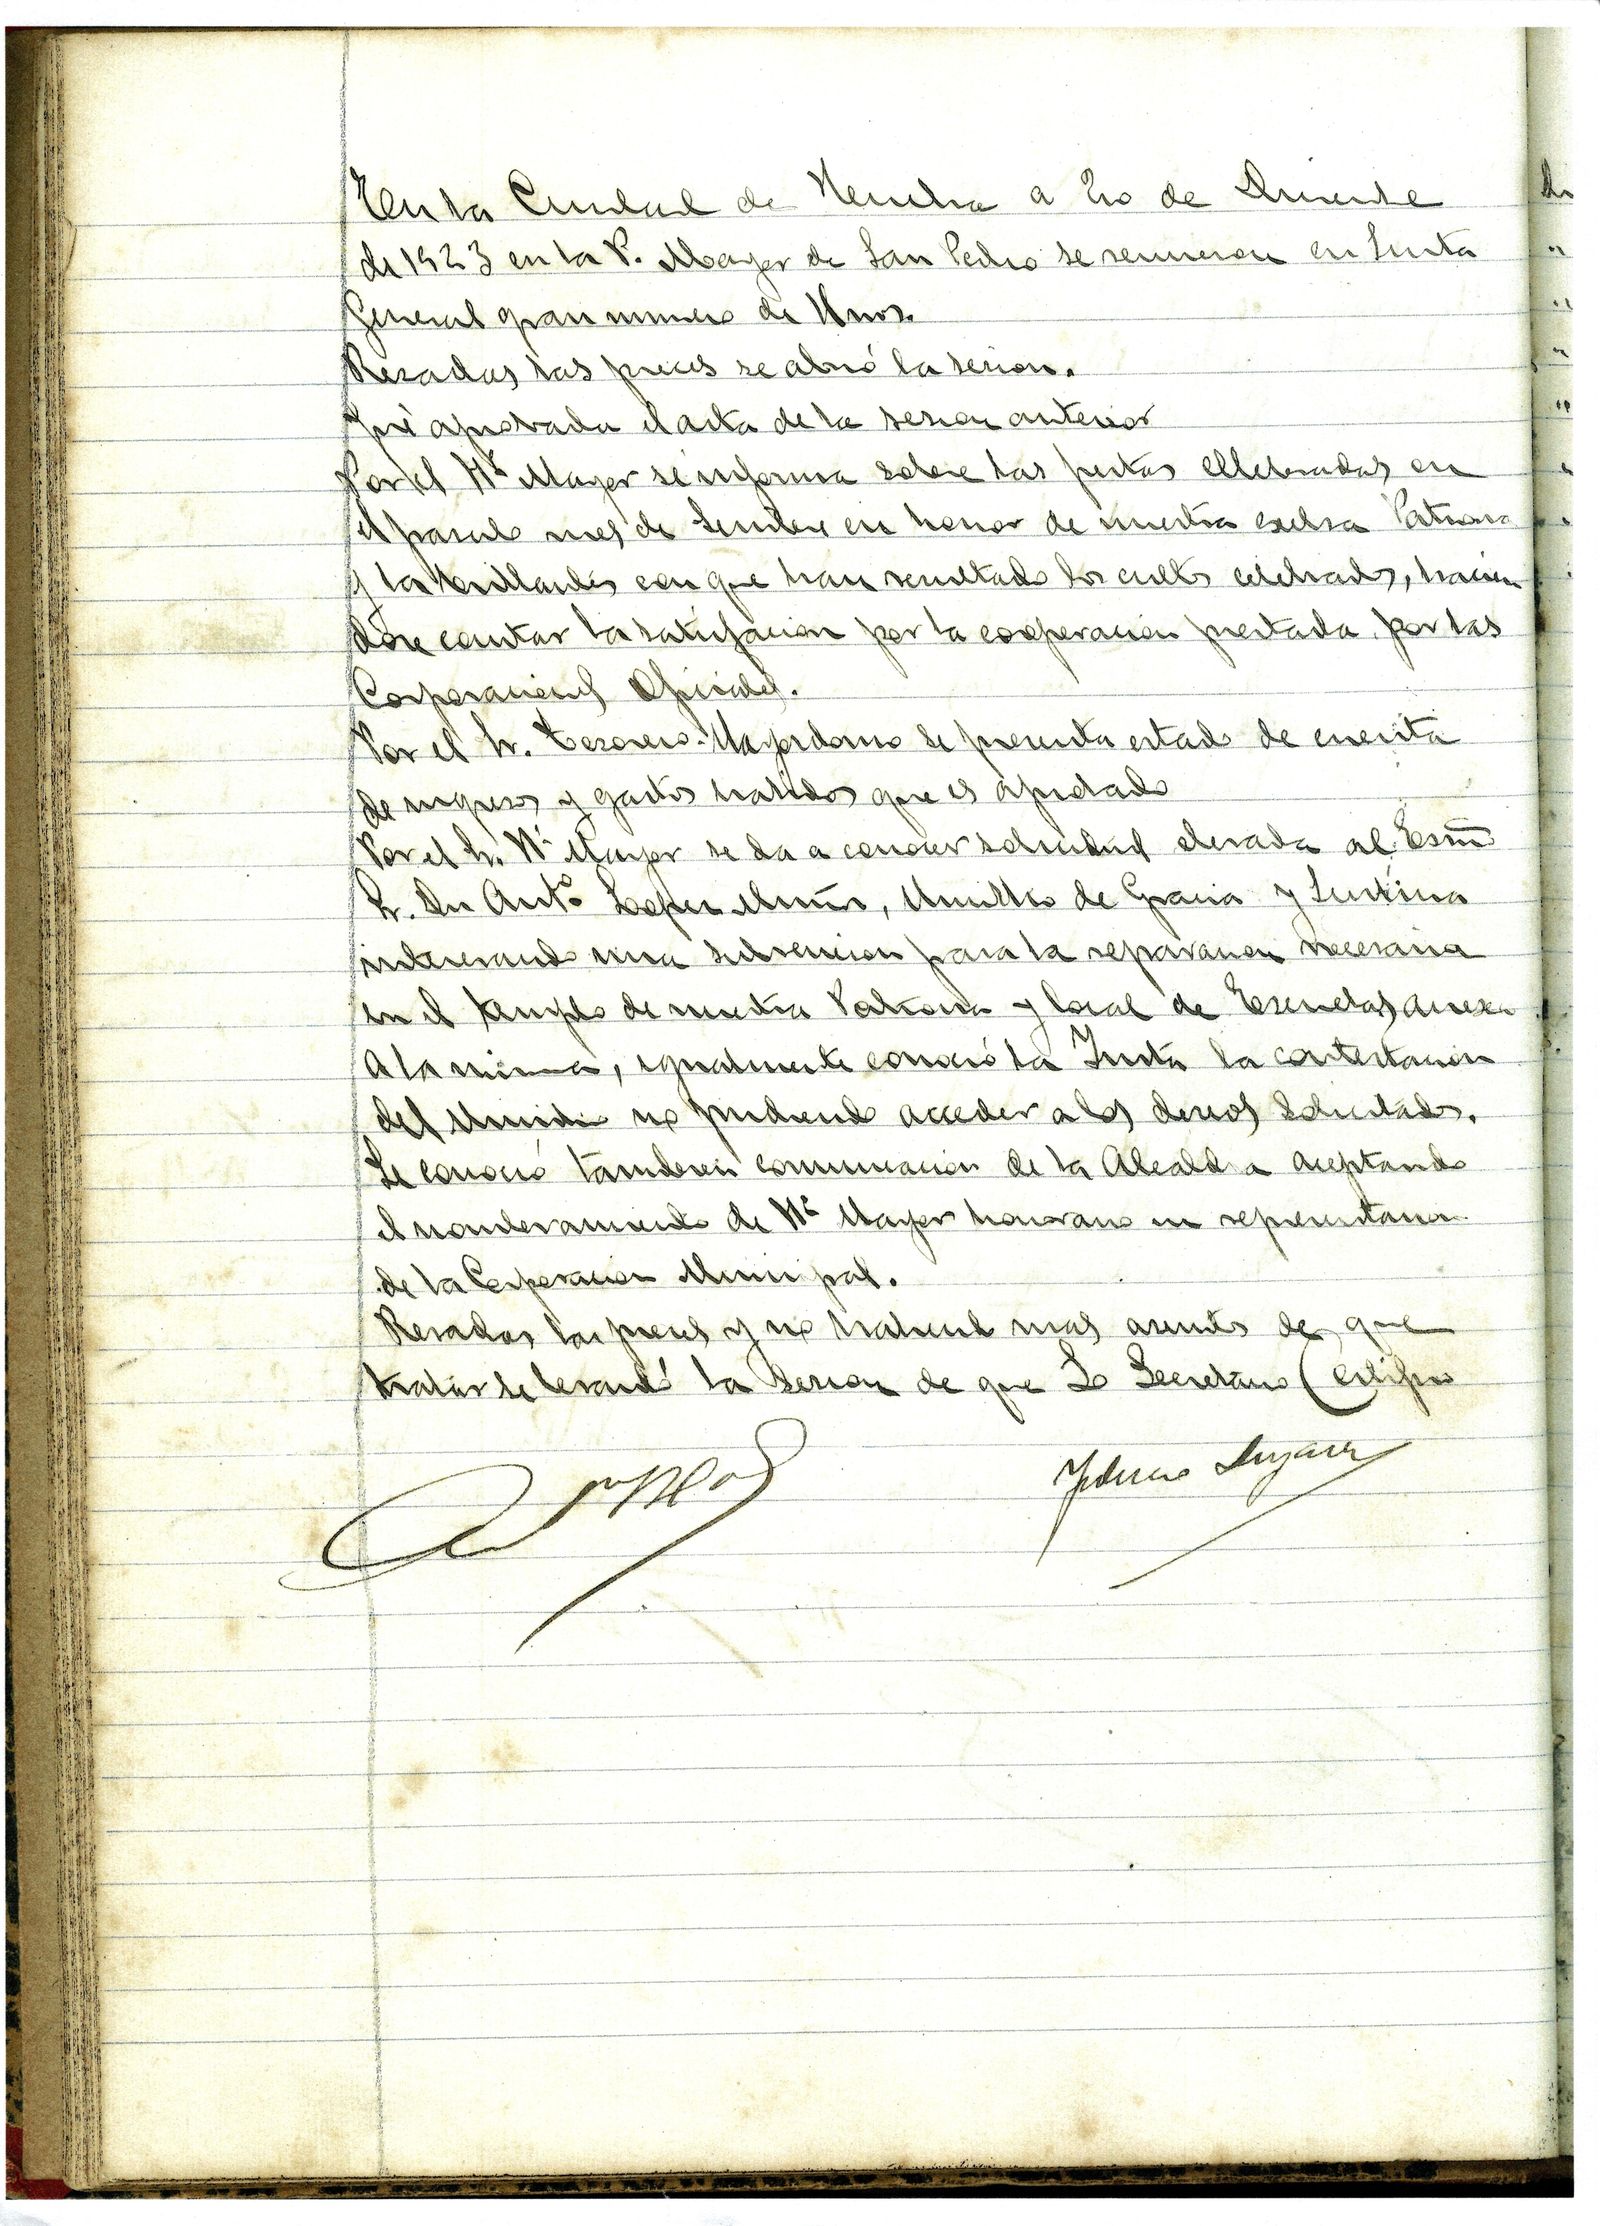 En la Ciudad de Huelva a de Diciembre
de 1923 en la P. Mayor de San Pedro se reunieron en Junta
General gran numero de Hnos.
Rezadas las preces se abrió la sesion.
Fué aprobada el acta de la sesion anterior
Por el Hº Mayor se informa sobre las fiestas celebradas en
el pasado mes de Sepbre en honor de nuestra excelsa Patrona
y la brillantés con que han resultado los cultos celebrados, hacien
dose constar la satisfacion por la cooperacion prestada por las
Corporaciones Oficiales.
Por el Sr. Tesorero-Mayordomo se presenta estado de cuenta
de ingresos y gastos habidos que es aprobado
Por el Sr. Hº Mayor se da a conocer solicitud elevada al Exmº
Sr. Dn Antº Lopez Muñoz, Ministro de Gracia y Justicia
interesando una subvencion para la reparacion necesaria
en el templo de nuestra Patrona y local de Escuelas anexo
a la misma, igualmente conoció la Junta la contestacion
del Ministro no pudiendo acceder a los deseos solicitados.
Se conoció tambien comunicacion de la Alcaldia aceptando
el nombramiento de Hº Mayor honorario en representacion
de la Corporacion Municipal.
Rezadas las preces y no habiendo mas asuntos de que
tratar se levantó la sesion de que Yo Secretario Certifico
Federico